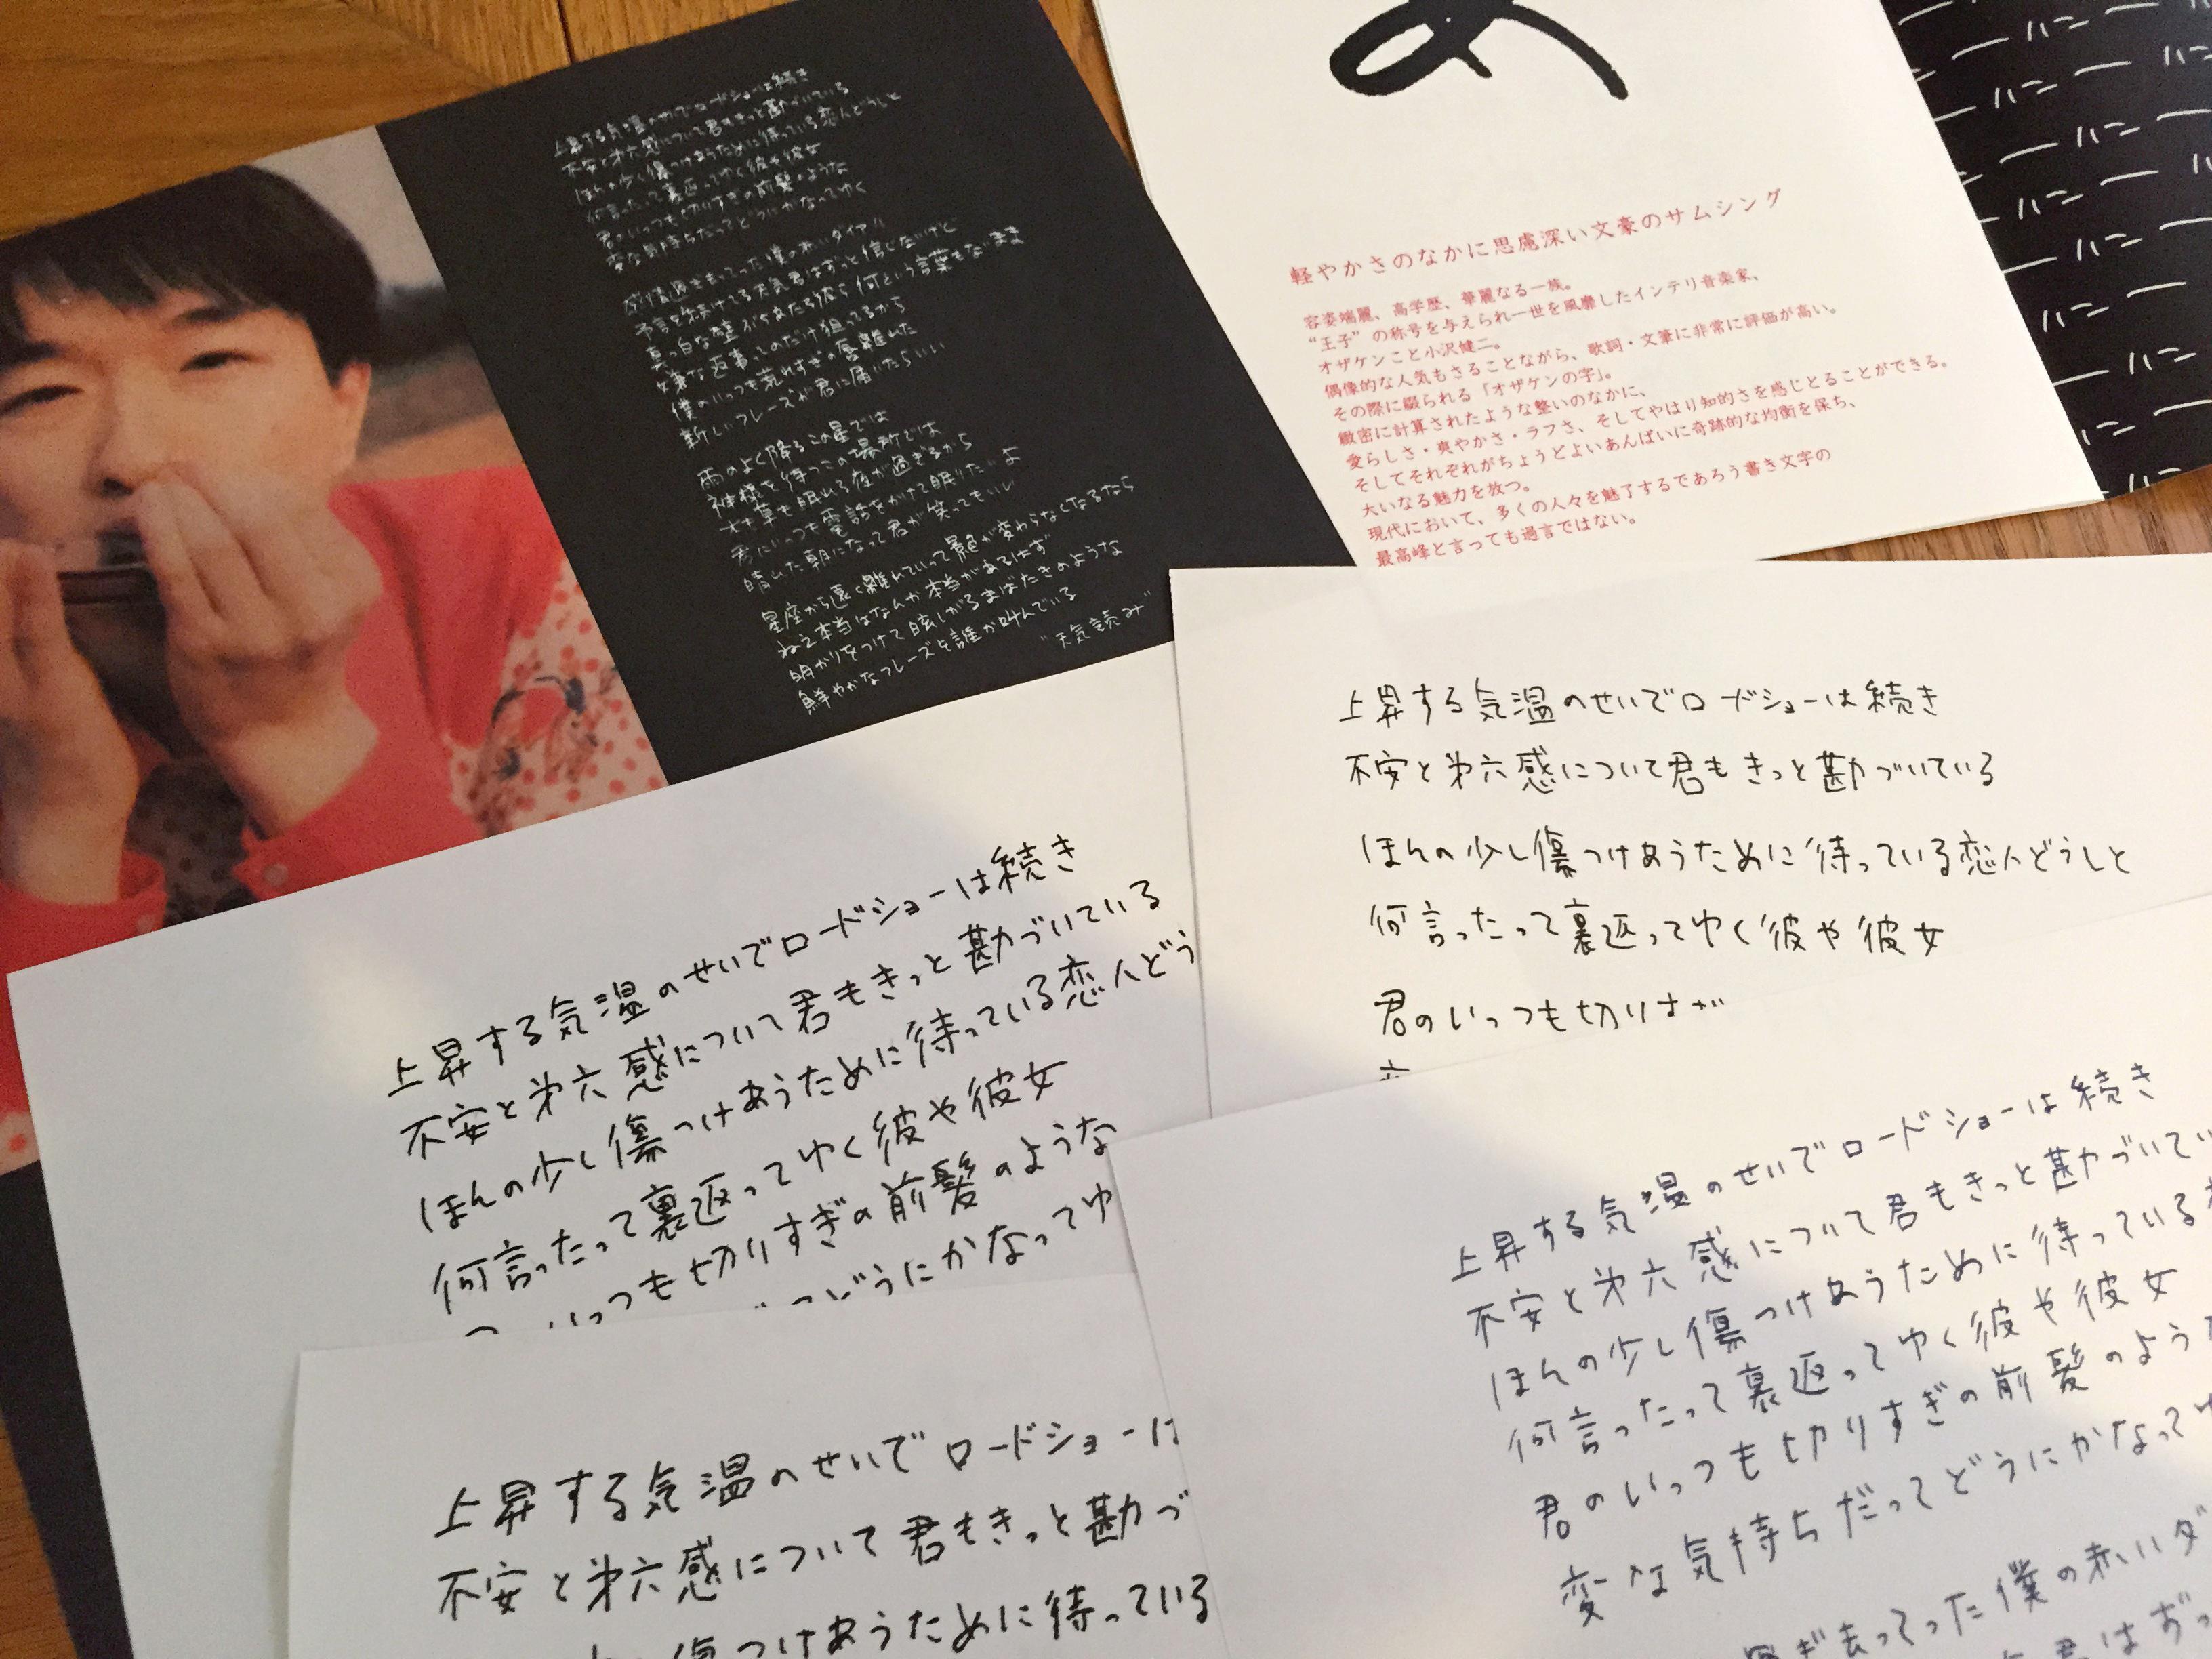 上昇する気温のせいでロードショーは続き
不安と第六感について君もきっと勘づいている
ほんの少し傷つけあうために待っている恋人どうしと
何言ったって裏返ってゆく彼や彼女
君のいつも切りすぎの前髪のような
変な気持ちだってどうにかなってゆく
予言を分けてる天気 君はずっと信じないけど
真っ白な壁
返事
僕のいつも荒れすぎの唇離れた
新しいフレーズが君に届いたらいい
雨のよく降るこの星では
神様を待つこの場所では
木も草も眠れる夜が過ぎるから
君にいつも電話をかけて眠りたいよ
晴れた朝になって君が笑ってもいい
星座から遠く離れていって景色が変わらなくなるなら
ねえ本当はなんか本当があるはず
明かりをつけて眩しがるまばたきのような
鮮やかなフレーズを誰か叫んでいる
“天気読み”
の
軽やかさのなかに思慮深い文豪のサムシング
容姿端麗、高学歴、華麗なる一族。
“王子”の称号を与えられ一世を風靡したインテリ音楽家、
オザケンこと小沢健二。
偶像的な人気もさることながら、歌詞・文筆に非常に評価が高い。
その際に綴られる「オザケンの字」。
緻密に計算されたような整いのなかに、
愛らしさ・爽やかさ・ラフさ、そしてやはり知的さを感じとることができる。
そしてそれぞれがちょうどよいあんばいに奇跡的な均衡を保ち、
大いなる魅力を放つ。
現代において、多くの人々を魅了するであろう書き文字の
最高峰と言っても過言ではない。
上昇する気温のせいでロードショーは続き
不安と第六感について君もきっと勘づいている
ほんの少し傷つけあうために待っている恋人どうしと
何言ったって裏返ってゆく彼や彼女
君のいつも切りすぎ
上昇する気温のせいでロードショーは続き
不安と第六感について君もきっと勘づいている
ほんの少し傷つけあうために待っている恋人どう
何言ったって裏返ってゆく彼や彼女
いつも切りすぎの前髪のような
どうにかなってゆ
上昇する気温のせいでロードショーは続き
不安と第六感について君もきっと勘づいてい
ほんの少し傷つけあうために待っている
何言ったって裏返ってゆく彼や彼女
君のいつも切りすぎの前髪のような
変な気持ちだってどうにかなってゆ
過ぎ去ってった僕の赤いダ
君はずっ
上昇する気温のせいでロードショーは
不安と第六感について君もきっと勘づ
傷つけあうために待っている